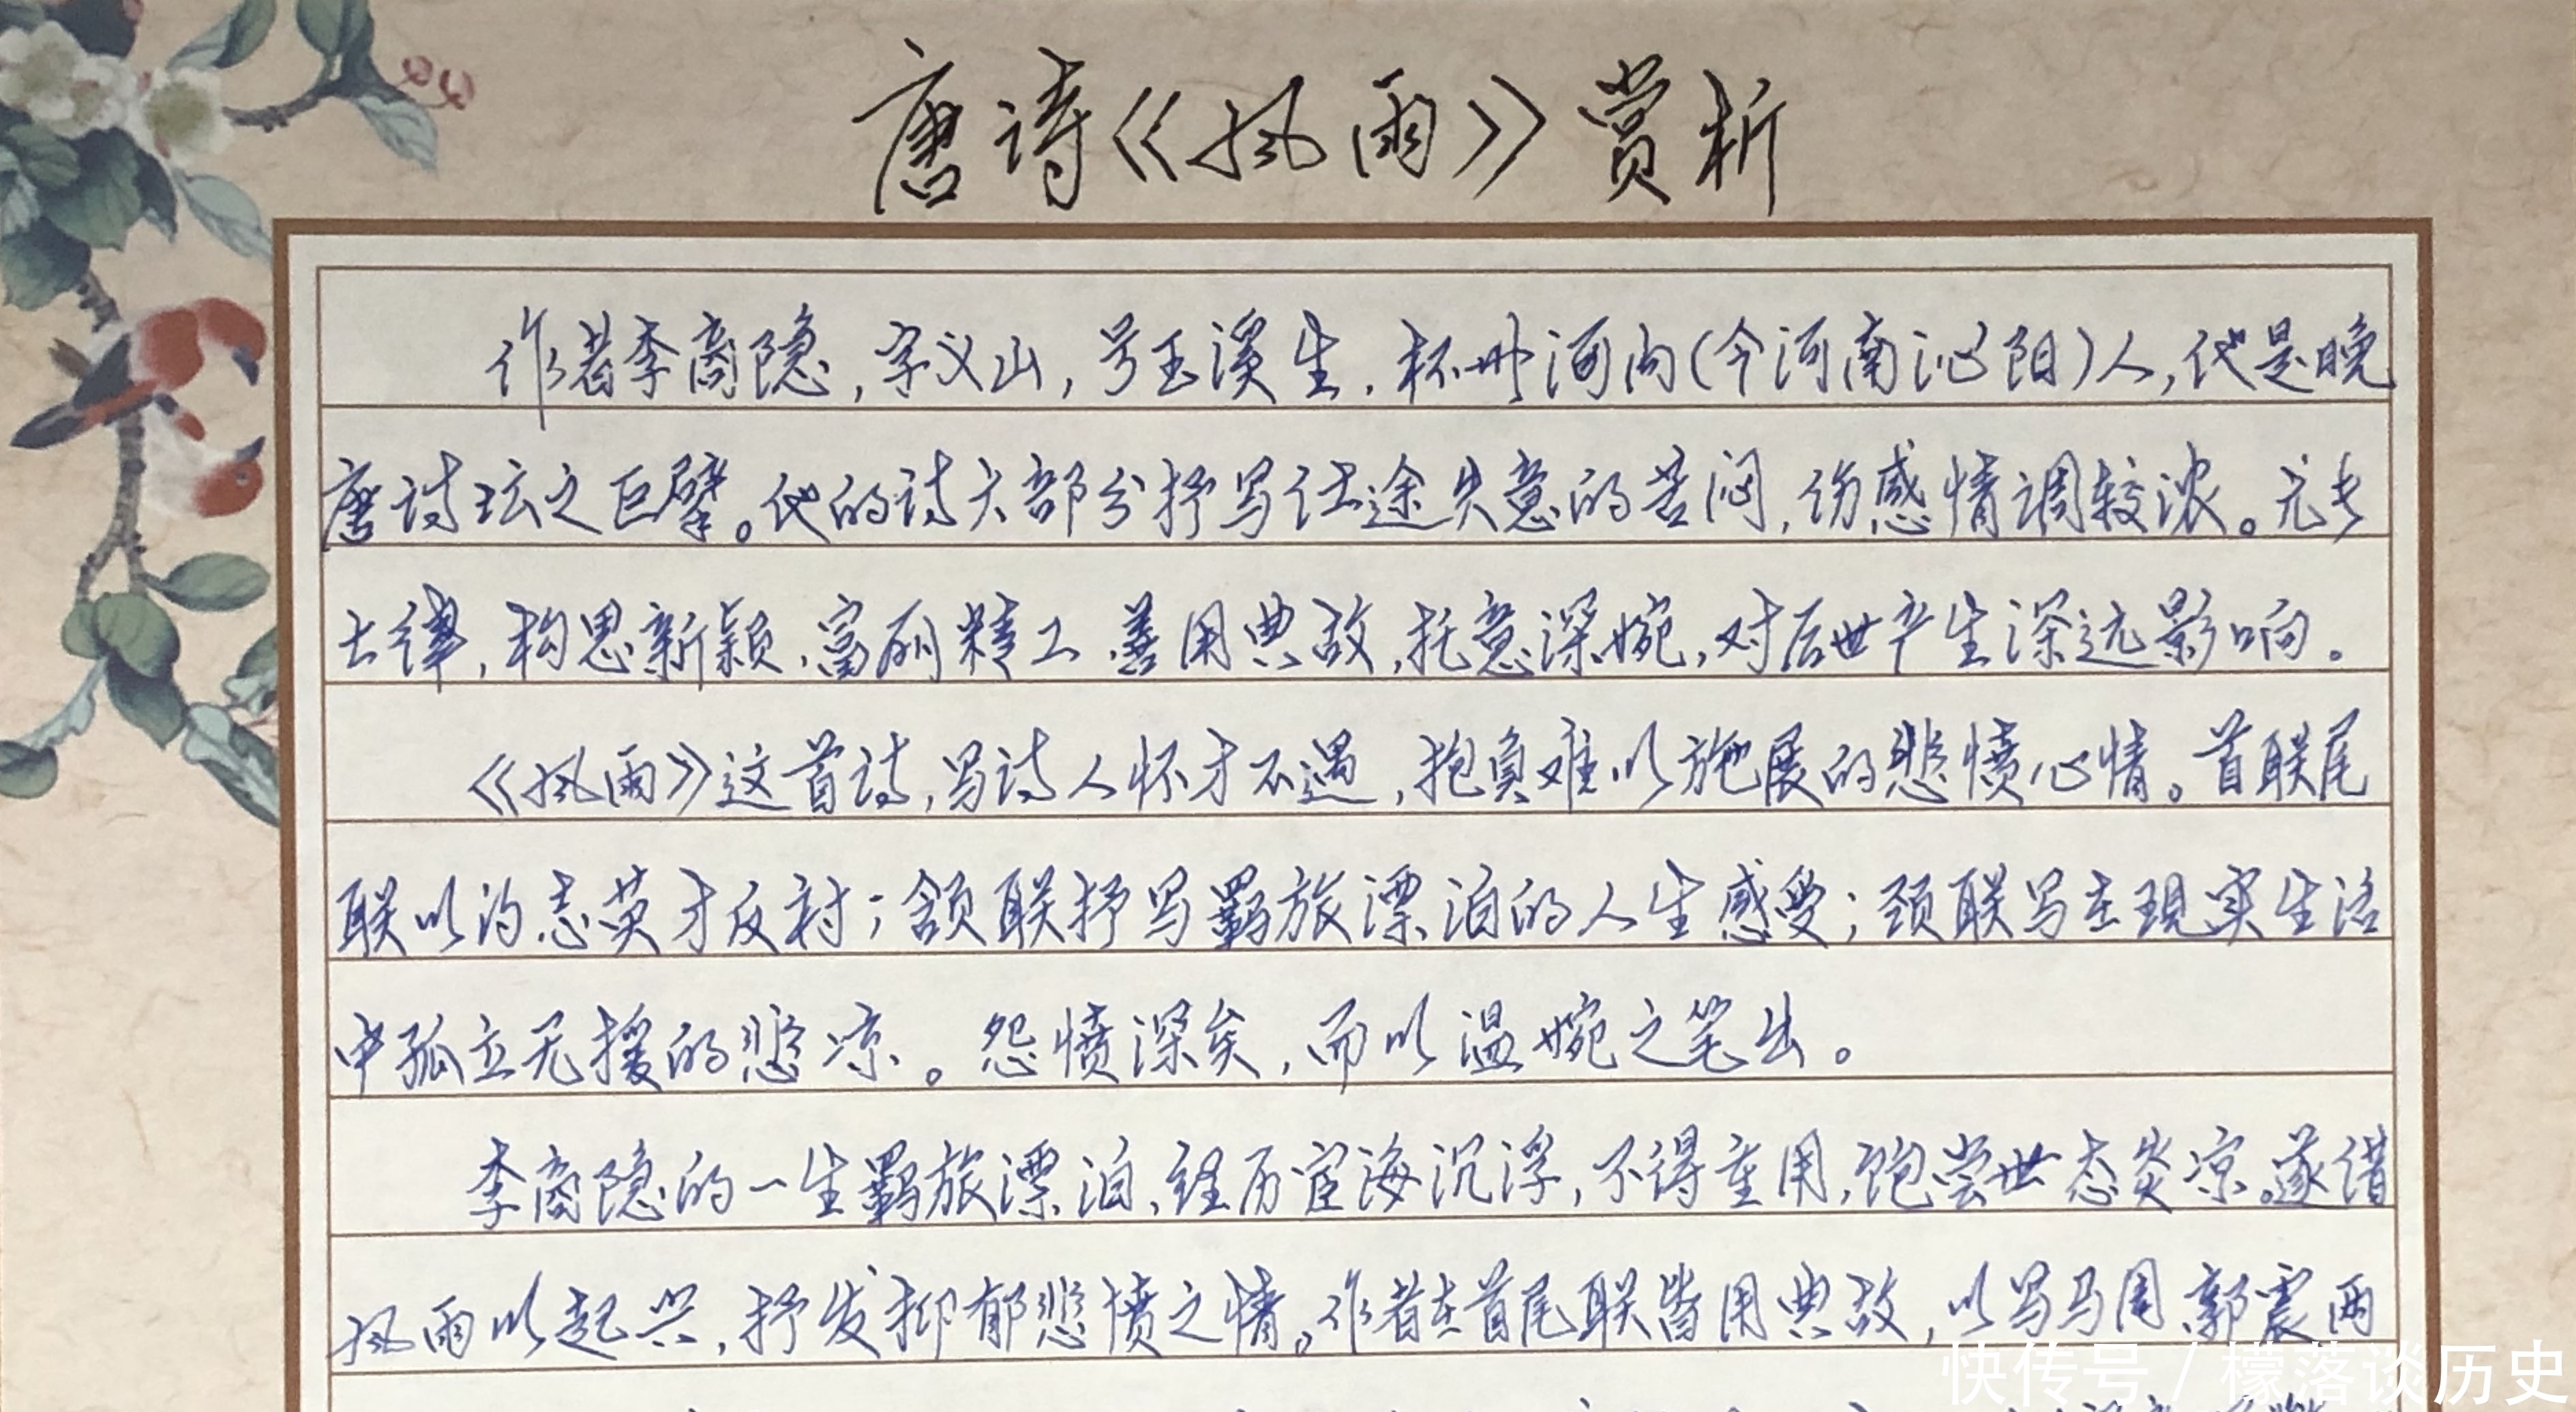 唐诗《风雨》赏析
作者李商隐，字义山，号玉溪生，怀州河内(今河南沁阳)人，他是晚
唐诗坛之巨擘。他的诗大部分抒写仕途失意的苦闷，伤感情调较浓。尤长
七律，构思新颖，富丽精工，善用典故，托意深婉，对后世产生深远影响。
《风雨》这首诗，写诗人怀才不遇，抱负难以施展的悲愤心情。首联尾
联以为志英才反衬；颔联抒写羁旅漂泊的人生感受；颈联写在现实生活
中孤立无援的悲凉。怨愤深矣，而以温婉之笔出。
李商隐的一生羁旅漂泊、经历宦海沉浮，不得重用，饱尝世态炎凉。遂借
风雨以起兴，抒发抑郁悲愤之情。作者在首尾联皆用典故，以写马周、郭震两
快传号 / 檬落谈历史